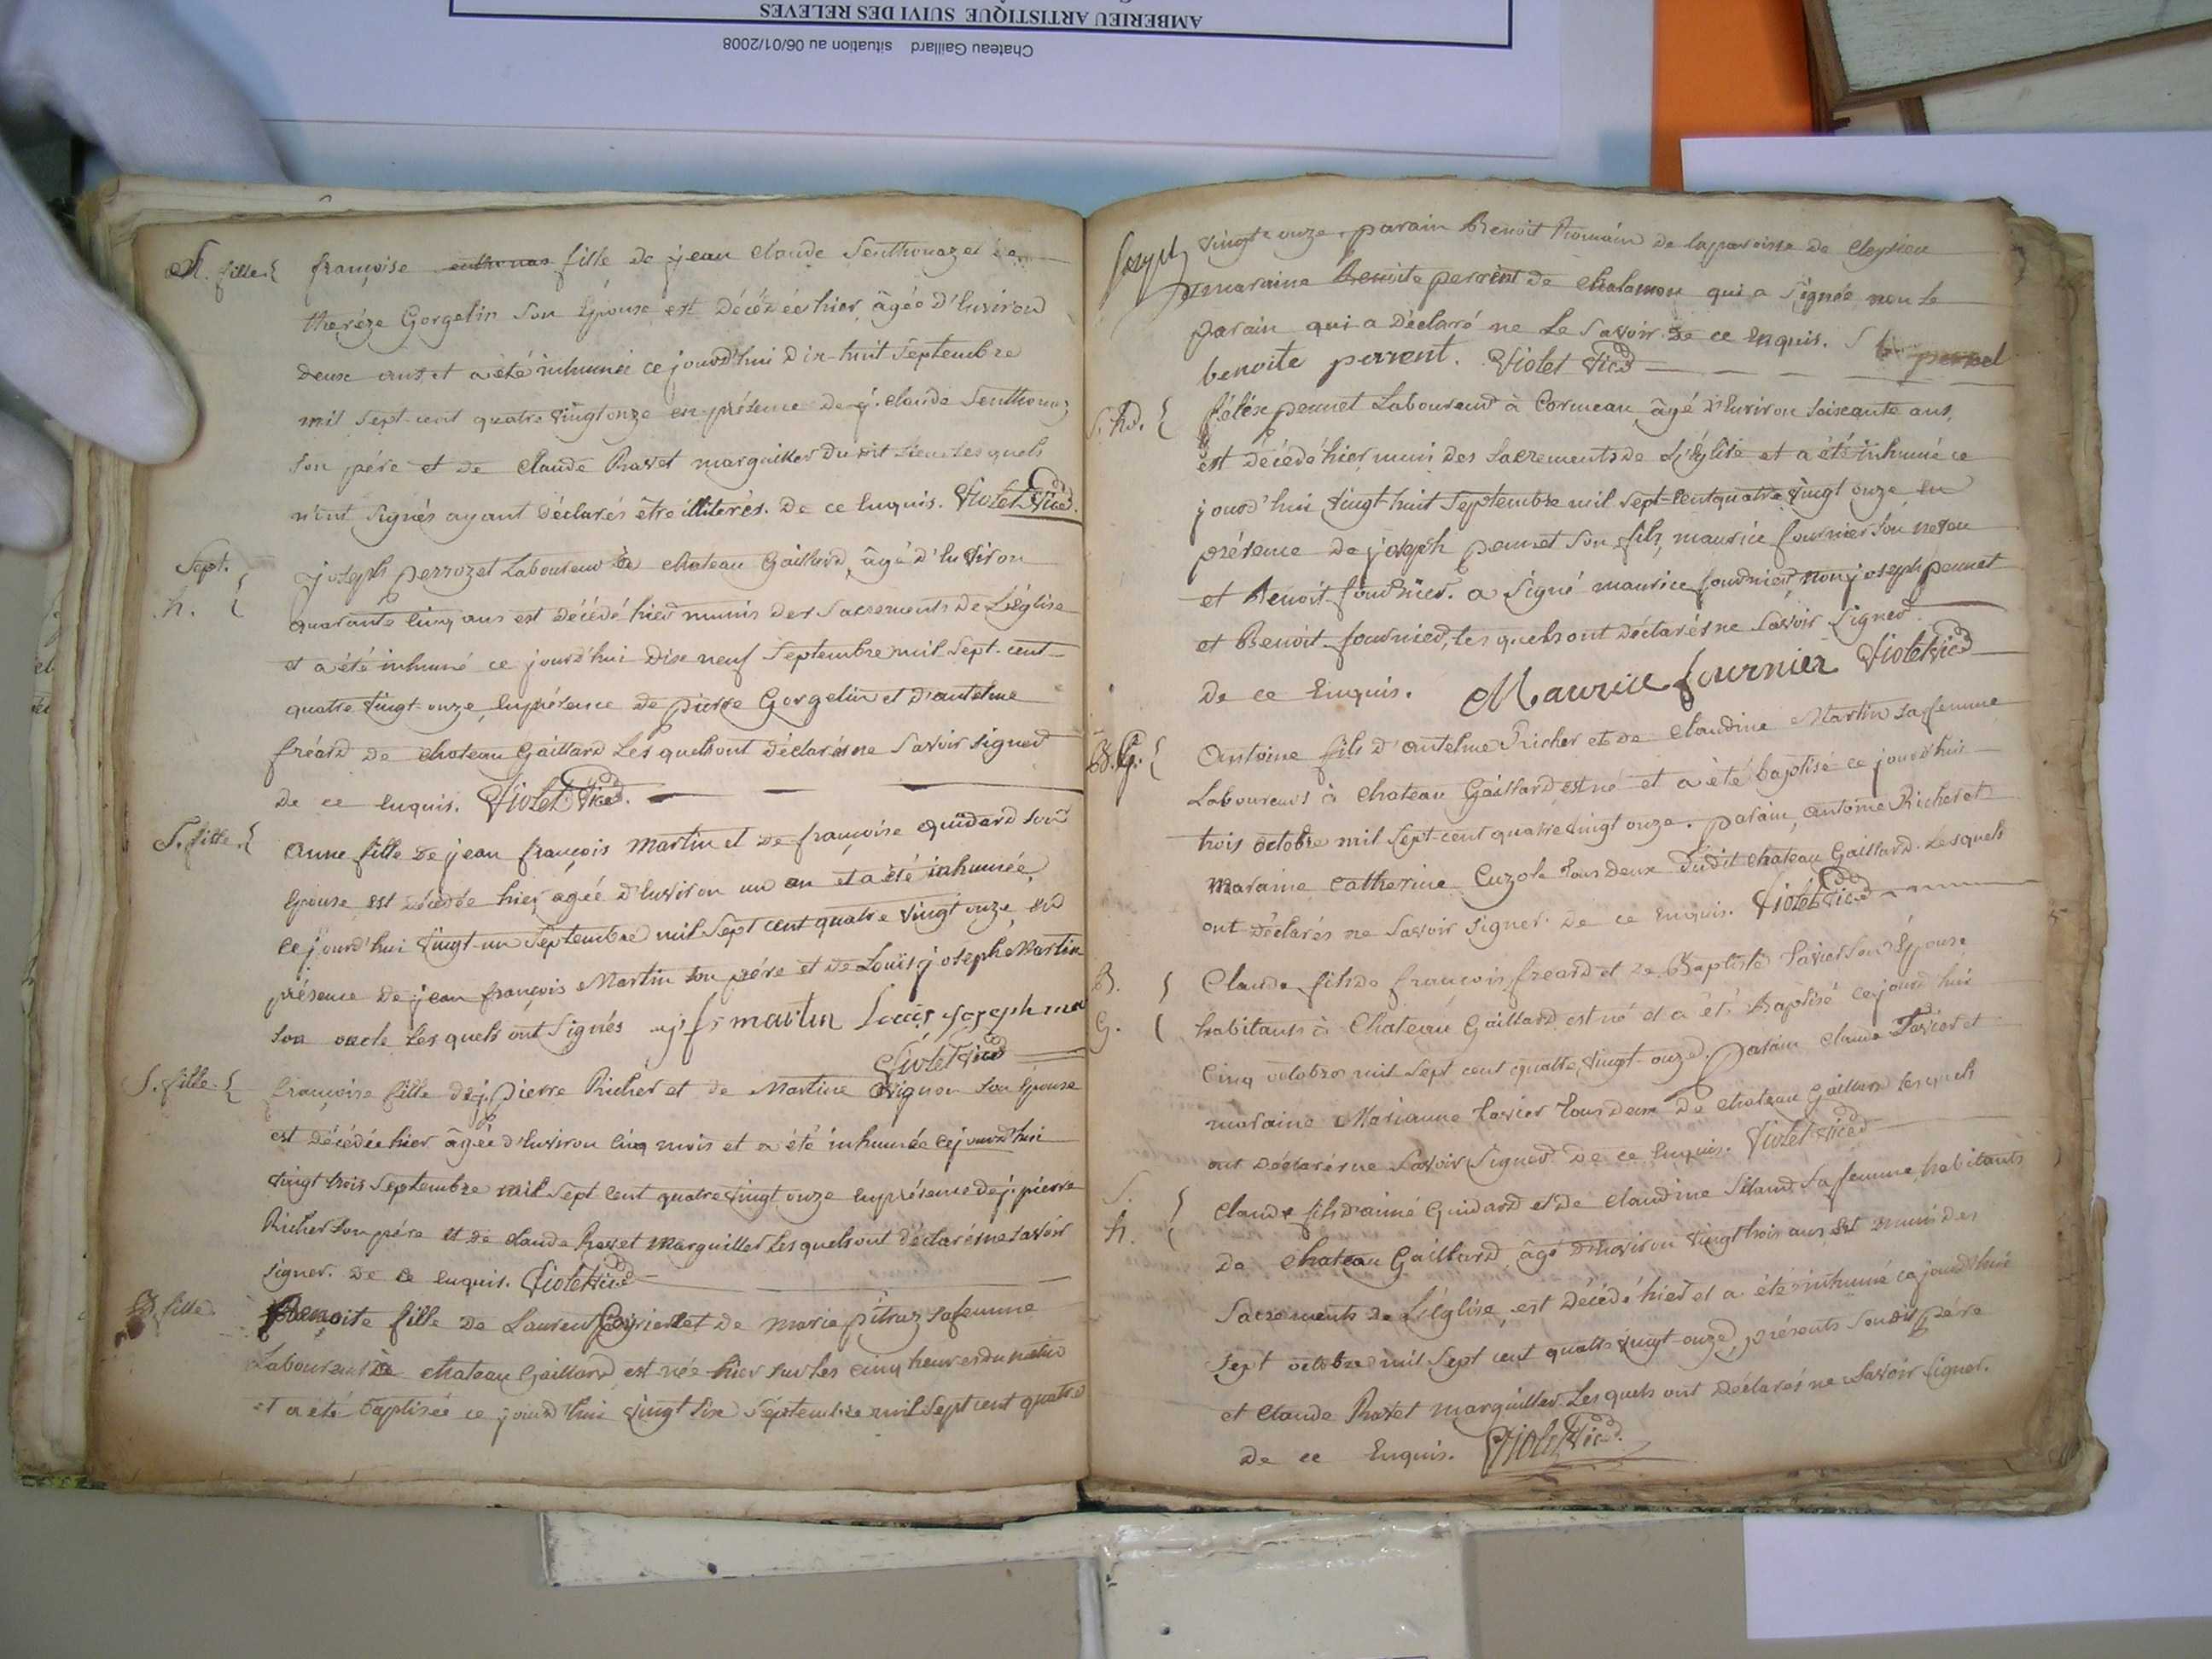 AMBERIEU ARTISTIQUE SUIVI DES RELEVES
Chateau Gaillard situation au 06/01/2008
S. fille françoise fille de jean claude Senthonaz et de
therèze Gorgelin son Epouse est décédée hier, âgée d'Environ
deux ans, et a été inhumée ce jourd'hui dix-huit Septembre
mil Sept-cent quatre vingt onze en présence de j. claude Senthonaz
son père et de claude Ravet marguiller dudit lieu Lesquels
n'ont Signés ayant déclarés être illiterés. de ce Enquis. Violet Vic.
Sept.
h.
joseph perrozet Laboureur à chateau Gaillard, âgé d'Environ
quarante cinq ans est décédé hier munis des Sacrements de L'église
et a été inhumé ce jourd'hui dix neuf Septembre mil Sept-cent
quatre vingt-onze, En présence de pierre Gorgelin et d'antelme
fréard de chateau Gaillard Lesquels ont déclarés ne Savoir signer
de ce Enquis. Violet Vic.
S. fille
Anne fille de jean françois Martin et de françoise quidard son
Epouse est décédée hier, agée d'Environ un an et a été inhumée
ce jourd'hui vingt-un Septembre mil Sept cent quatre vingt onze, en
présence de jean françois Martin son père et de Louis joseph Martin
son oncle Lesquels ont Signés j fs martin Louis joseph mar
Violet Vic
S. fille
françoise fille de j. pierre Richer et de Martine Vignon son Epouse
est décédée hier âgée d'Environ cinq mois et a été inhumée ce jourd'hui
vingt trois Septembre mil Sept cent quatre vingt onze En présence de j. pierre
Richer son père et de claude Ravet Marguiller Lesquels ont déclarés ne savoir
signer. de ce Enquis. Violet Vic
B. fille
Benoite fille de Laurent et de marie pitraz sa femme
Laboureurs à chateau Gaillard, est née hier sur les cinq heures du matin
et a été baptisée ce jourd'hui vingt six Septembre mil Sept cent quatre
vingt onze. parain Benoit Romain de la paroisse de Cleyzieu
et maraine Benoite perrent de chalamon qui a Signée non le
parain qui a déclaré ne Le Savoir de ce Enquis.
benoite perrent. Violet Vic
S. h.
félix pennet Laboureur à Cormeau âgé d'Environ soixante ans,
est décédé hier muni des Sacrements de L'église et a été inhumé ce
jourd'hui vingt-huit Septembre mil Sept-cent quatre vingt onze en
présence de joseph pennet son fils, maurice fournier son neveu
et Benoit fournier. a Signé maurice fournier, non joseph pennet
et Benoit fournier, les quels ont déclarés ne Savoir Signer
de ce Enquis. Maurice fournier Violet Vic
B. G.
Antoine fils d'antelme Richer et de claudine Martin sa femme
Laboureurs à chateau Gaillard, est né et a été baptisé ce jourd'hui
trois octobre mil Sept-cent quatre vingt onze. parain, antoine Richer et
maraine catherine Cuzole tous deux dudit chateau Gaillard. Lesquels
ont déclarés ne Savoir signer de ce Enquis. Violet Vic
B.
G.
Claude fils de françois freard et de Baptiste Tavier son Epouse
habitants à chateau Gaillard est né et a été Baptisé ce jourd'hui
cinq octobre mil Sept cent quatre vingt-onze. parain claude Tavier et
maraine Marianne Tavier tous deux de chateau Gaillard lesquels
ont déclarés ne Savoir Signer de ce Enquis. Violet Vic
S.
h.
claude fils d'aimé Guidard et de claudine sa femme, habitants
de chateau Gaillard, âgé d'Environ vingt trois ans, est muni des
Sacrements de L'église, est décédé hier et a été inhumé ce jourd'hui
sept octobre mil Sept cent quatre vingt-onze, présents Sondit père
et claude Ravet marguiller Lesquels ont déclarés ne Savoir Signer.
de ce Enquis. Violet Vic.